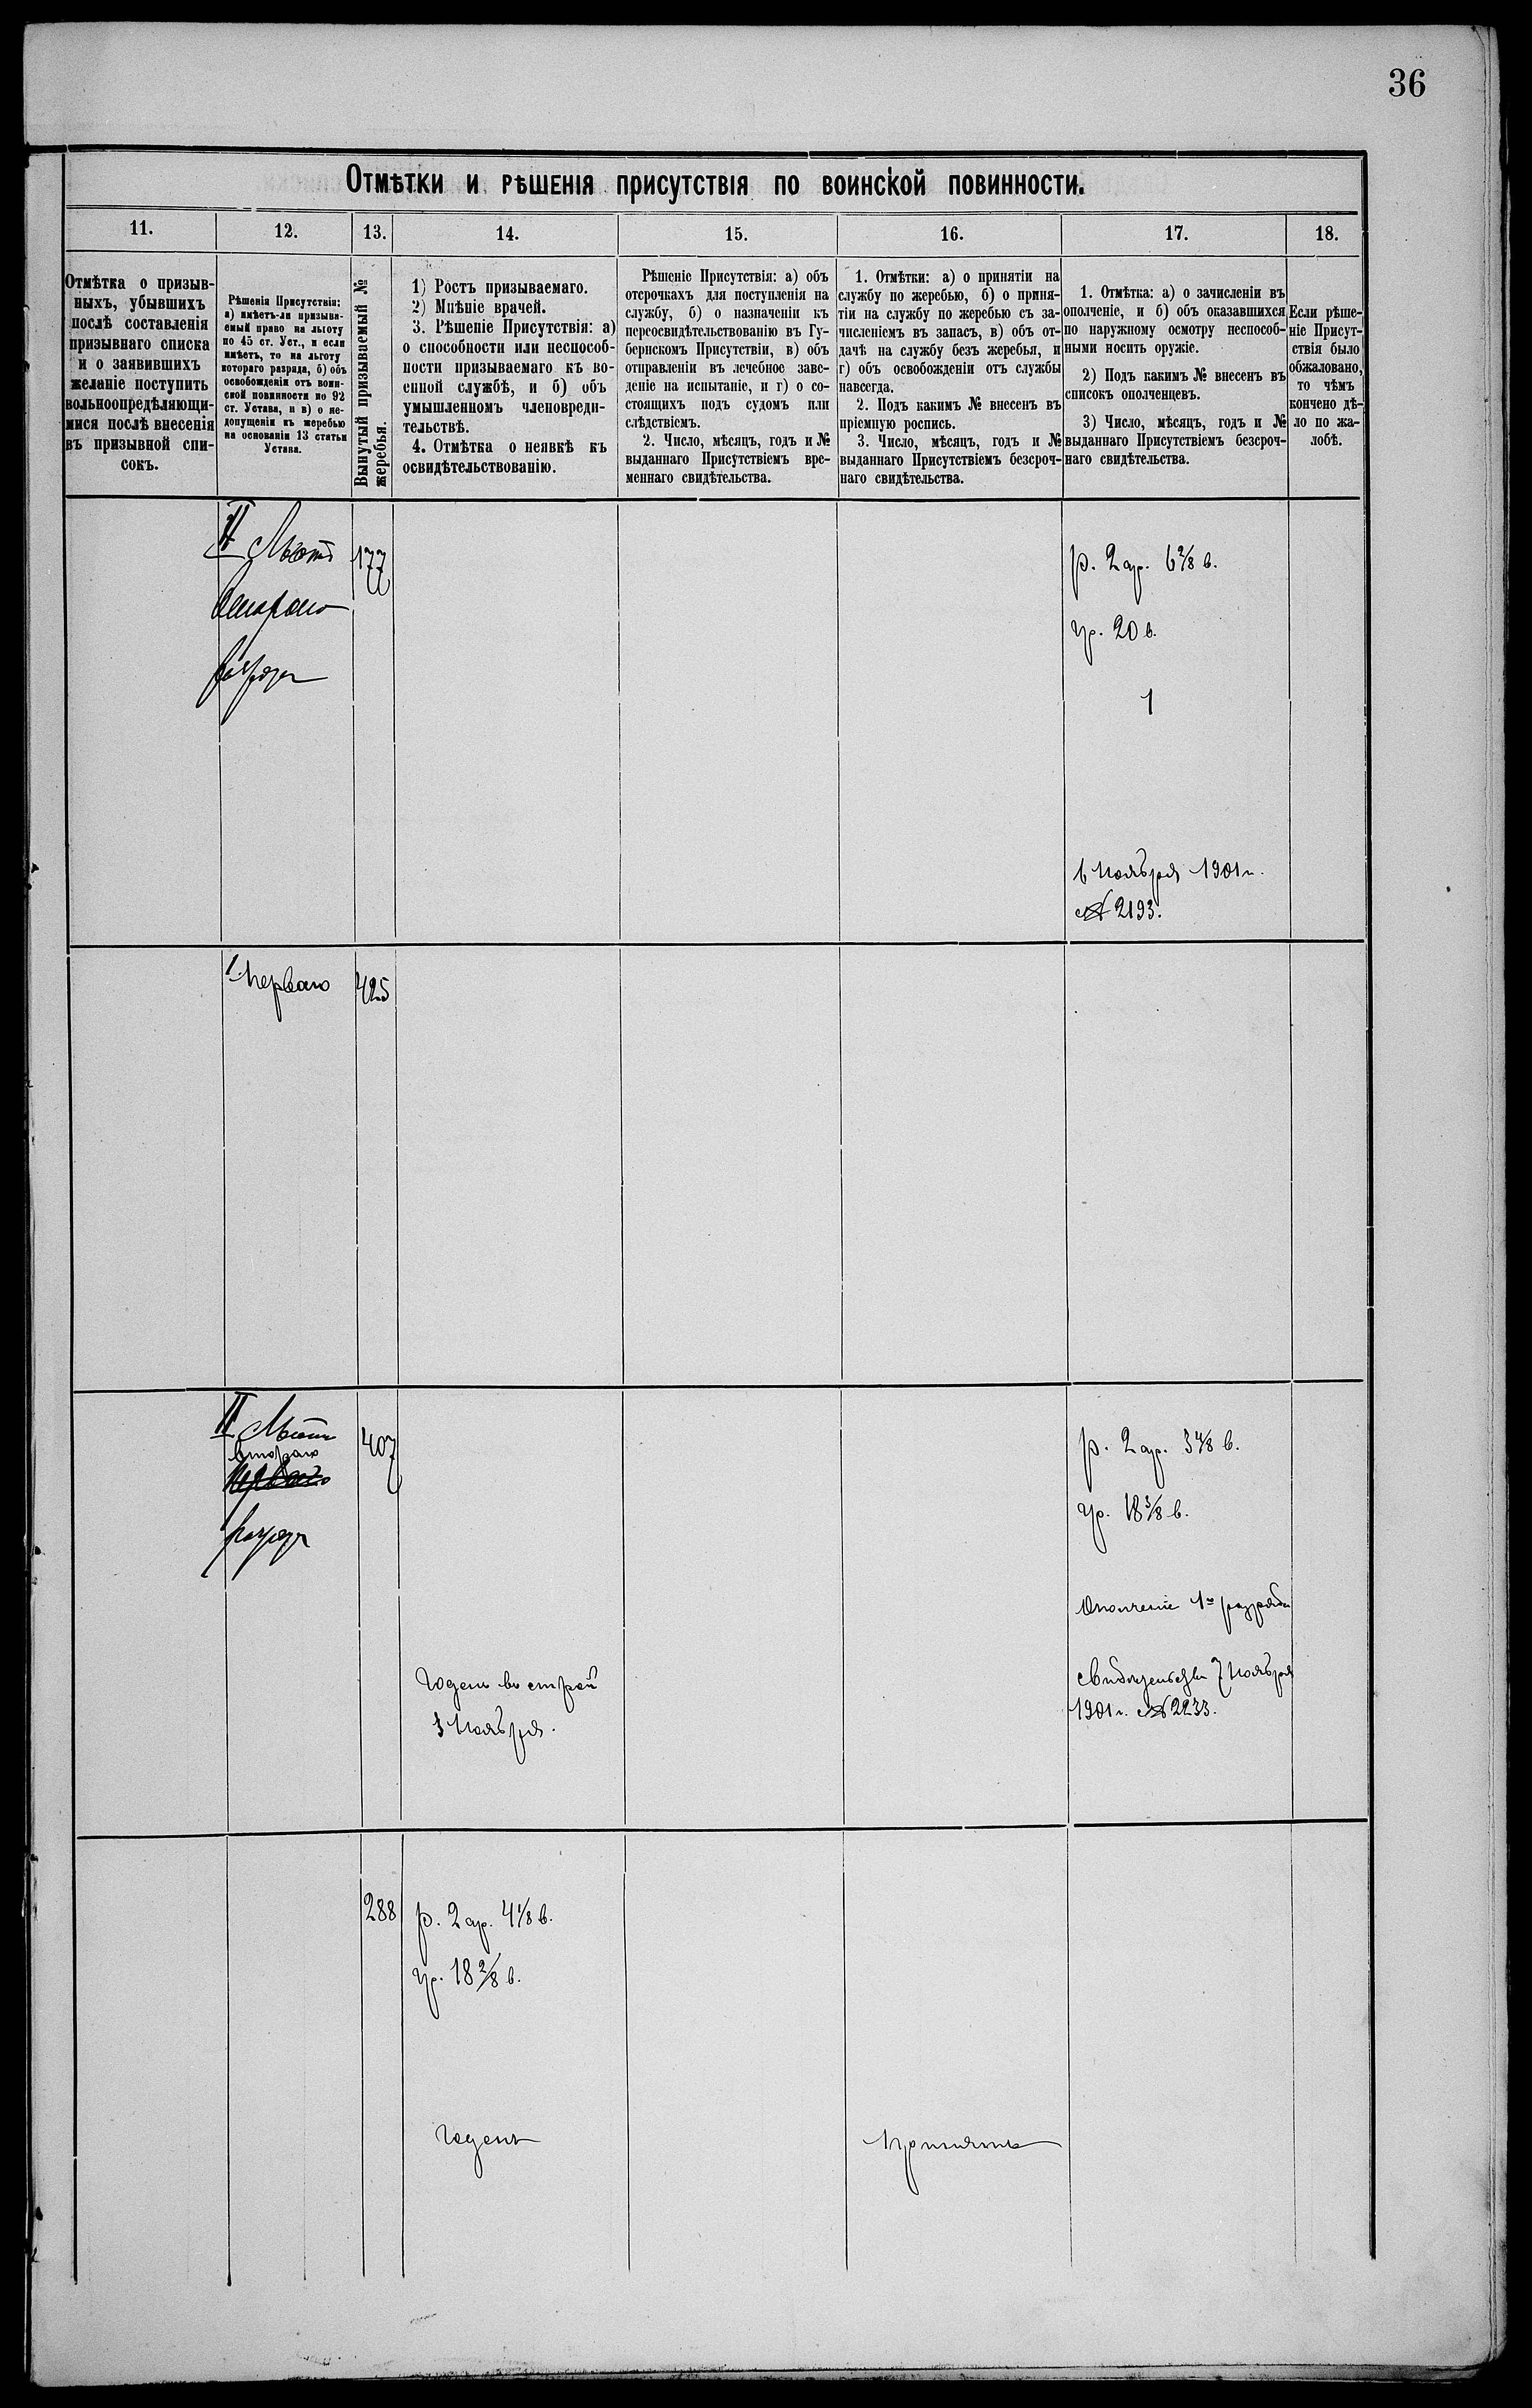 36
Отмѣтки и рѣшенія присутствія по воинской повинности.
11.
12.
13.
14.
15.
16.
17.
18.
Отмѣтка о призыв-
ныхъ, убывшихъ
послѣ составленія
призывнаго списка
и о заявившихъ
желаніе поступить
вольноопредѣляющи-
мися послѣ внесенія
въ призывной спи-
сокъ.
Рѣшенія Присутствія:
а) имѣетъ-ли призыва-
емый право на льготу
по 45 ст. Уст., и если
имѣетъ, то на льготу
котораго разряда, б) объ
освобожденіи отъ воин-
ской повинности по 92
ст. Устава, и в) о не-
допущеніи къ жеребью
на основаніи 13 статьи
Устава.
Вынутый призываемый №
жеребья.
1) Ростъ призываемаго.
2) Мнѣніе врачей.
3. Рѣшеніе Присутствія: а)
о способности или неспособ-
ности призываемаго къ во-
енной службѣ, и б) объ
умышленномъ членовреди-
тельствѣ.
4. Отмѣтка о неявкѣ къ
освидѣтельствованію.
Рѣшеніе Присутствія: а) объ
отсрочкахъ для поступленія на
службу, б) о назначеніи къ
переосвидѣтельствованію въ Гу-
бернскомъ Присутствіи, в) объ
отправленіи въ лечебное заве-
деніе на испытаніе, и г) о со-
стоящихъ подъ судомъ или
слѣдствіемъ.
2. Число, мѣсяцъ, годъ и №
выданнаго Присутствіемъ вре-
меннаго свидѣтельства.
1. Отмѣтки: а) о принятіи на
службу по жеребью, б) о приня-
тіи на службу по жеребью съ за-
численіемъ въ запасъ, в) объ от-
дачѣ на службу безъ жеребья, и
г) объ освобожденіи отъ службы
навсегда.
2. Подъ какимъ № внесенъ въ
пріемную роспись.
3. Число, мѣсяцъ, годъ и №
выданнаго Присутствіемъ безсроч-
наго свидѣтельства.
1. Отмѣтка: а) о зачисленіи въ
ополченіе, и б) объ оказавшихся
по наружному осмотру неспособ-
ными носить оружіе.
2) Подъ какимъ № внесенъ въ
списокъ ополченцевъ.
3) Число, мѣсяцъ, годъ и №
выданнаго Присутствіемъ безсроч-
наго свидѣтельства.
Если рѣше-
ніе Присут-
ствія было
обжаловано,
то чѣмъ
кончено дѣ-
ло по жа-
лобѣ.
II
177
р. 2 ар. 6 2/8 в.
гр. 20 в.
1
6 Ноября 1901 г.
№ 2193.
Перваго
425
II
втораго
Перваго
407
р. 2 ар. 3 4/8 в.
гр. 18 3/8 в.
Ополченіе 1го разряда
Годенъ въ строй
3 Ноября.
Свидѣтельство 7 Ноября
1901 г. № 2233.
288
р. 2 ар. 4 1/8 в.
гр. 18 2/8 в.
Годенъ
Принятъ